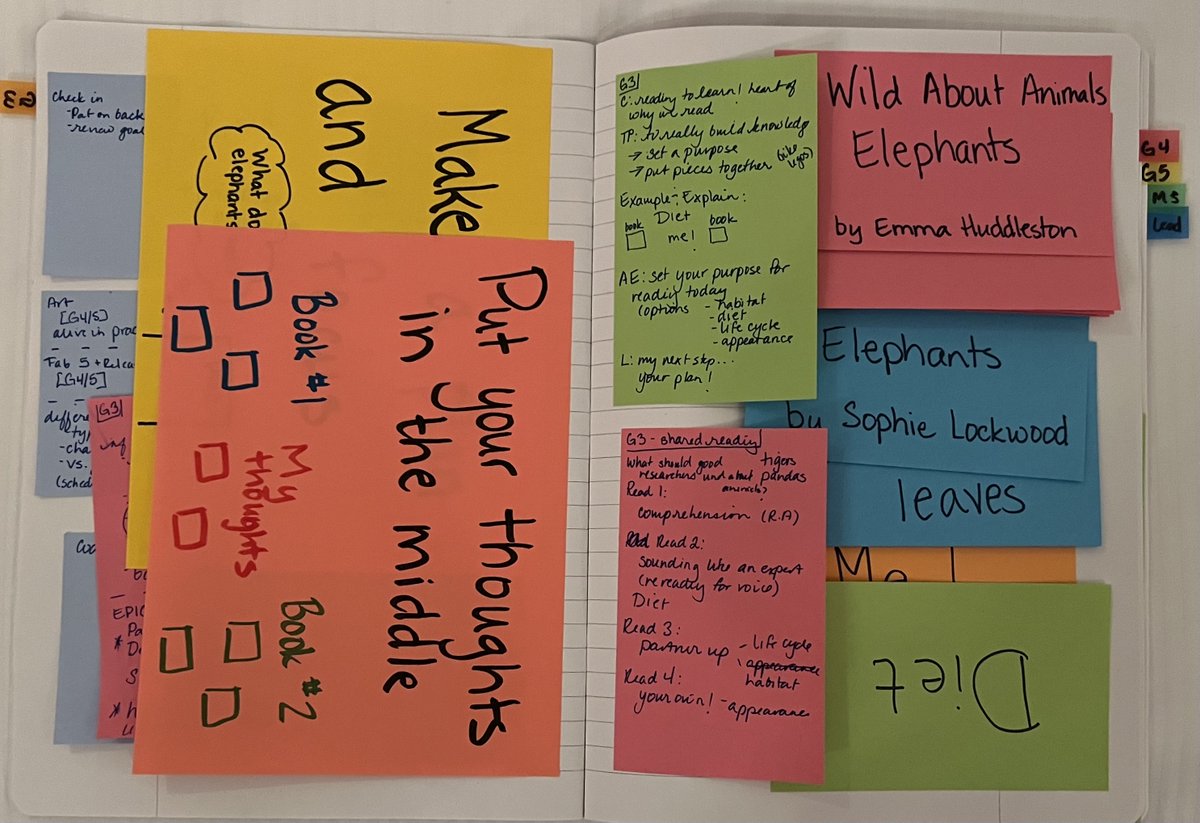 E3
Check in
- Pat on back
- renew goal
Art
[G4/5]
alive in
Fab 5 +
[G4/5]
(sched
G3
EPIC
Make
and
What do
elephants
Put your thoughts
in the middle
Book #1
My
thoughts
Book #2
G3
C: reading to learn! heart of
why we read
TP: to really build knowledge
→ set a purpose
→ put pieces together (like
legos)
Example; Explain:
Diet
book
me!
book
AE: set your purpose for
reading today
(options
- habitat
- diet
- life cycle
- appearance
L: my next step...
your plan!
G3 - shared reading
What should good
researchers und about
tigers
pandas
animals?
Read 1:
comprehension (R.A)
Read 2:
sounding like an expert
(re ready for voice)
Diet
Read 3:
partner up
- life cycle
appearance
habitat
Read 4:
your own!
- appearance
Wild About Animals
Elephants
by Emma Huddleston
Elephants
by Sophie Lockwood
leaves
Me!
Diet
G4
G5
MS
Lead